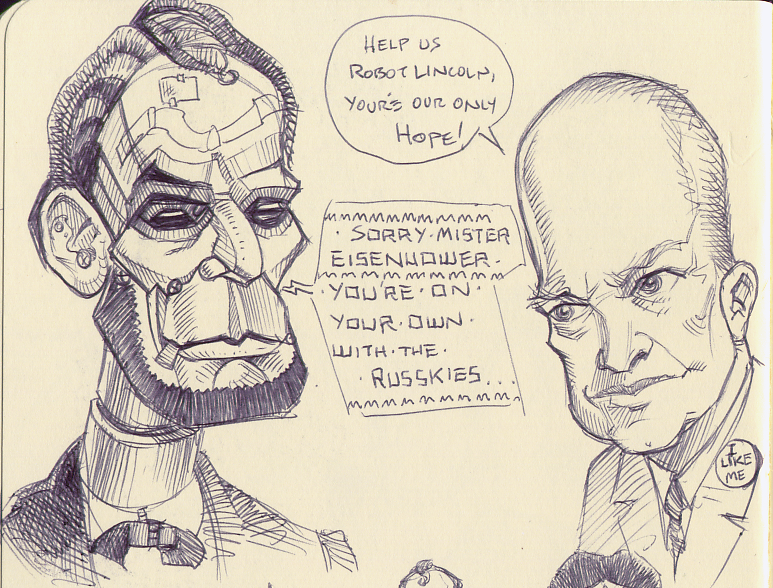 HELP US
ROBOT LINCOLN,
YOUR'E OUR ONLY
HOPE!
SORRY·MISTER
EISENHOWER·
·YOU'RE·ON·
YOUR·OWN·
WITH·THE·
·RUSSKIES...
I
LIKE
ME